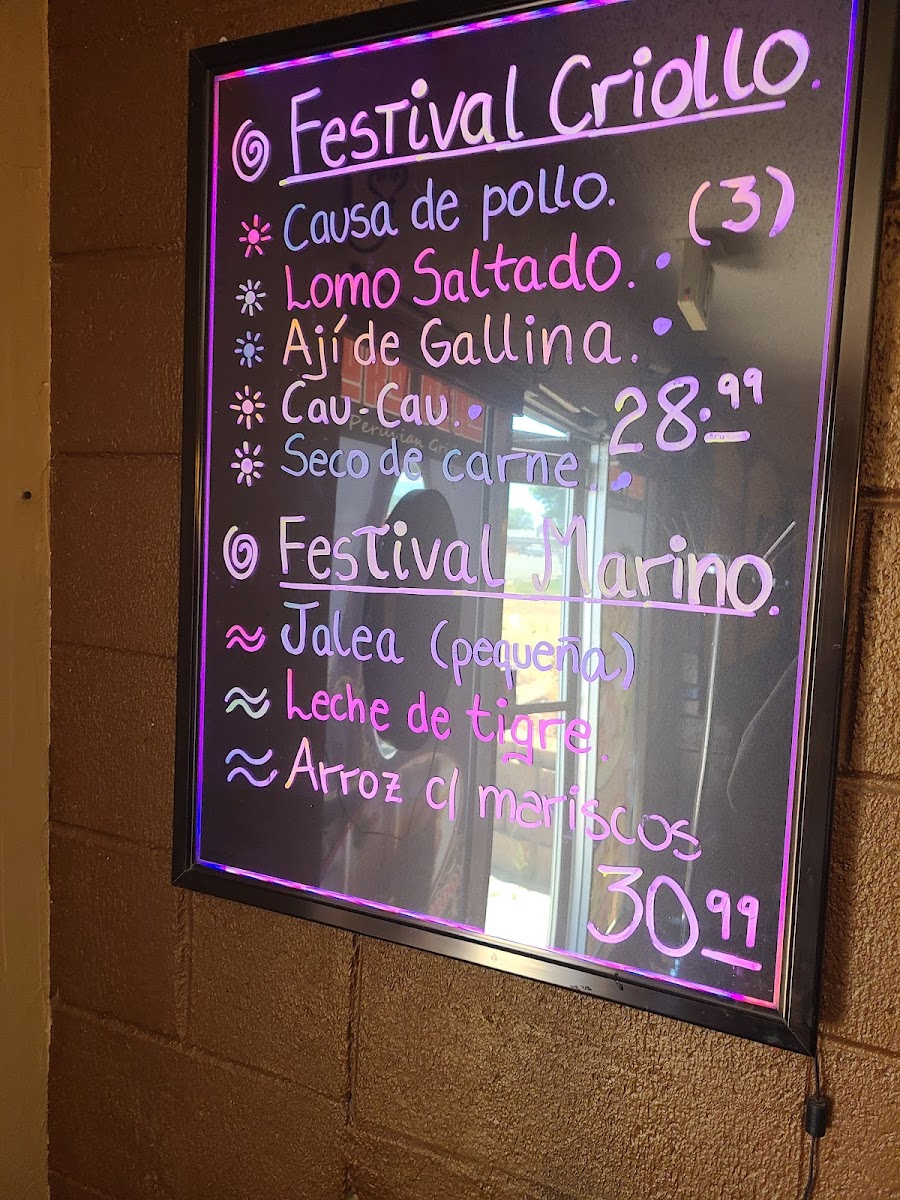 Festival Criollo.
Causa de pollo. (3)
Lomo Saltado.
Ají de Gallina.
Cau-Cau. 28.99
Seco de carne.
Festival Marino.
Jalea (pequeña)
Leche de tigre.
Arroz c/ mariscos
30 99
Peruvian